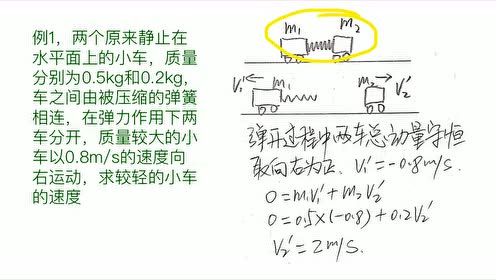 例1，两个原来静止在
水平面上的小车，质量
分别为0.5kg和0.2kg，
车之间由被压缩的弹簧
相连，在弹力作用下两
车分开，质量较大的小
车以0.8m/s的速度向
右运动，求较轻的小车
的速度
m₁ m₂
V₁' m₁ m₂ V₂'
弹开过程中两车总动量守恒
取向右为正. V₁'=-0.8m/s.
0=m₁V₁'+m₂V₂'
0=0.5×(-0.8)+0.2V₂'
V₂'=2m/s.